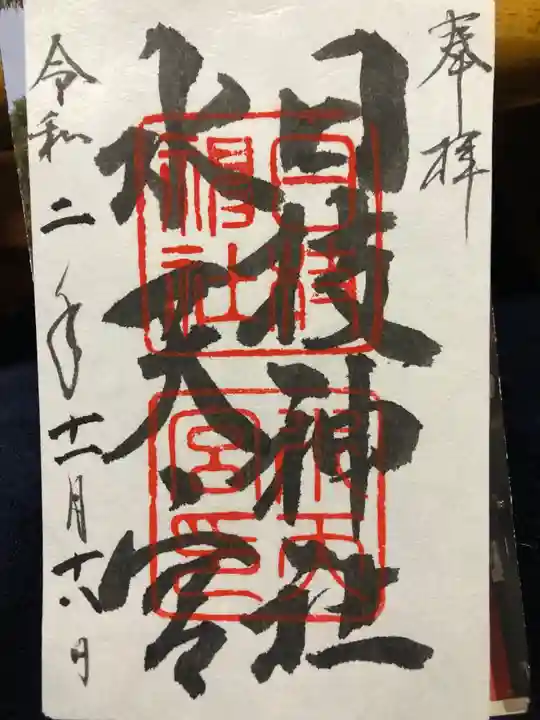 奉拝
日枝神社
水天宮
令和二年十二月十六日
日枝神社
水天宮印